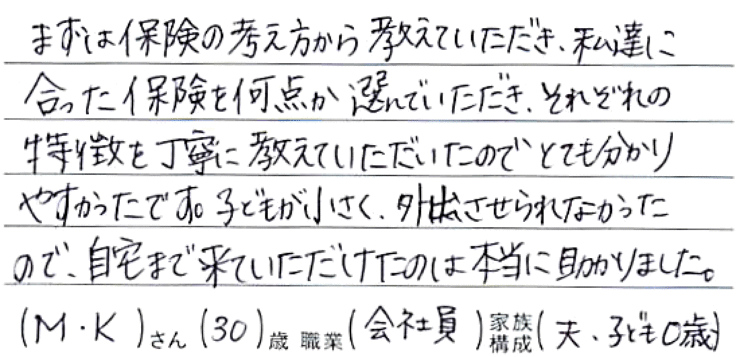 まずは保険の考え方から教えていただき、私達に
合った保険を何点か選んでいただき、それぞれの
特徴を丁寧に教えていただいたのでとても分かり
やすかったです。子どもが小さく、外出させられなかった
ので、自宅まで来ていただけたのは本当に助かりました。
(M・K)さん(30)歳 職業(会社員)家族構成(夫、子ども0歳)